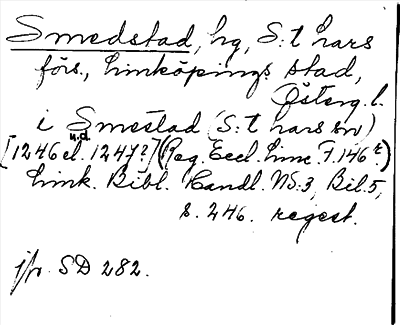 Smedstad, hg, S:t Lars
förs., Linköpings stad,
Österg. l.
i Smestad (S:t Lars sn)
u.d.
[1246 el. 1247?] (Reg. Eccl. Linc. F. 146 r.)
Link. Bibl. Handl. NS:3, Bil. 5,
s. 246. regest.
jfr SD 282.